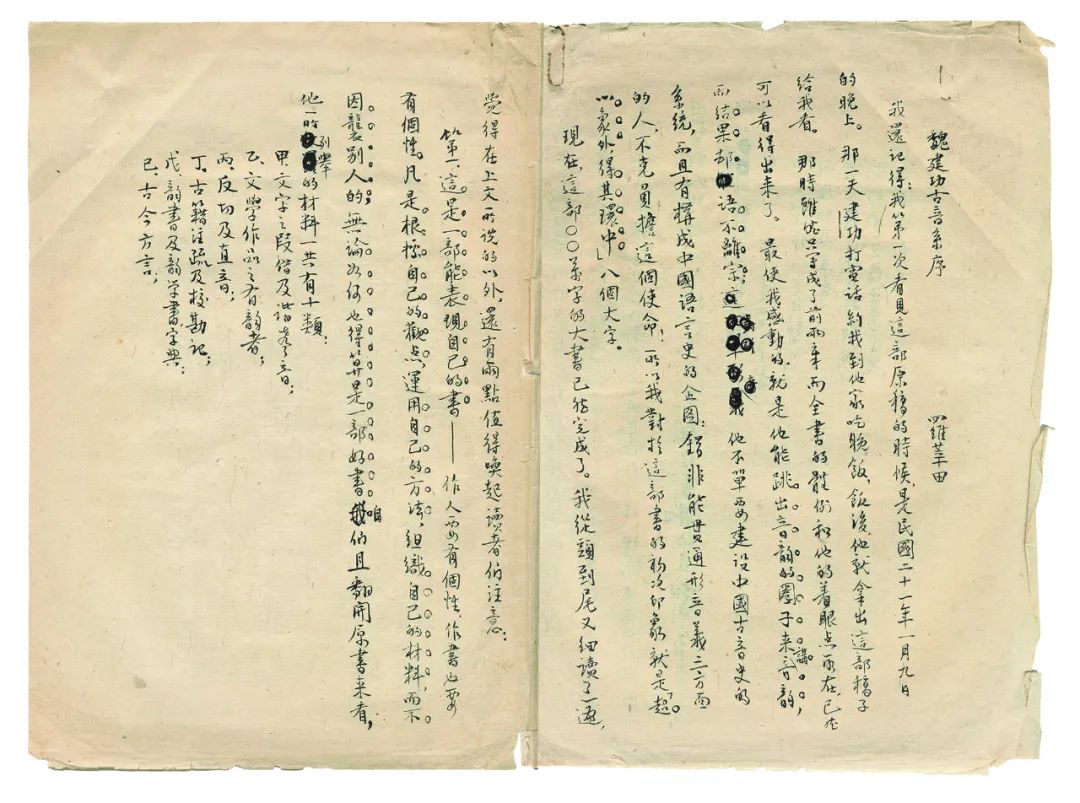 魏建功古音系序
羅莘田
我還記得:我第一次看見這部原稿的時候,是民國二十一年一月九日
的晚上。那一天建功打電話約我到他家吃晚飯,飯後,他就拿出這部稿子
給我看。那時雖然只寫成了前兩章而全書的體例和他的着眼点所在已然
可以看得出來了。最使我感動的,就是他能跳出音韻的圈子来講音韻,
而結果却語不離宗;他不單要建設中國古音史的
系統,而且有構成中國語言史的企圖:鎝非能貫通形音義三方面
的人,不克負擔這個使命,所以我對於這部書的初次印象就是「超
以象外,得其環中」八個大字。
現在,這部〇〇萬字的大書已然完成了。我從頭到尾又細讀了一遍,
覺得在上文所說的以外,還有兩點值得喚起讀者们注意:
第一,這是一部能表現自己的書——作人要有個性,作書也要
有個性。凡是根據自己的觀点,運用自己的方法,組織自己的材料,而不
因襲别人的,無論如何也得算是一部好書。咱们且翻開原書来看,
他所列舉的材料一共有十類:
甲、文字之段借及諧聲音;
乙、文學作品之有韻者;
丙、反切及直音;
丁、古籍注疏及校勘記;
戊、韻書及韻學書字典;
己、古今方言;